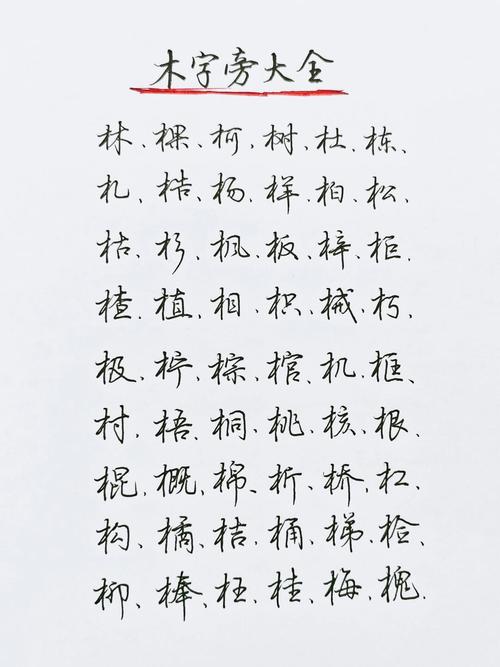 木字旁大全
林、棵、柯、树、杜、栋、
札、梏、杨、样、柏、松、
枯、杉、枫、板、梓、柜、
楂、植、相、枳、械、朽、
极、柠、棕、棺、机、框、
村、梧、桐、桃、核、根、
棍、概、棉、析、桥、杠、
构、橘、桔、桶、梯、检、
柳、棒、枉、桂、梅、槐.